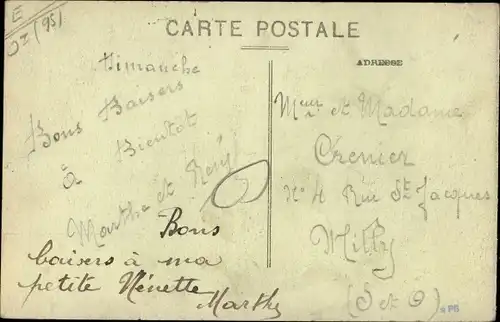 E
CARTE POSTALE
ADRESSE
Dimanche
Bons Baisers
à Bientôt
Marthe et René
Bons
baisers à ma
petite Nénette
Marthe
Meur et Madame
Crenier
No 4 Rue St Jacques
Milly
(S et O)